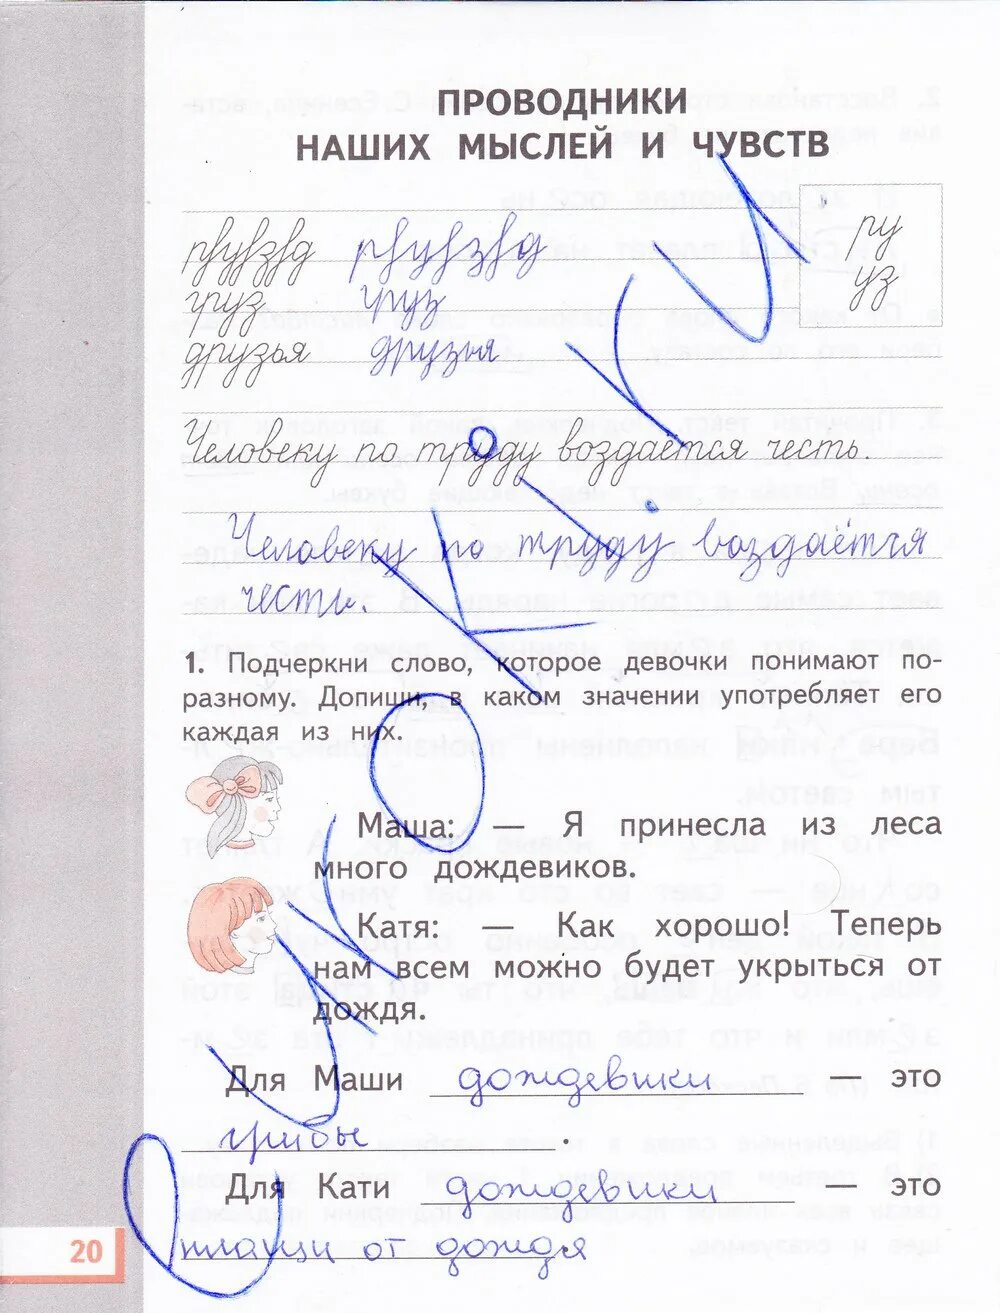 ПРОВОДНИКИ
НАШИХ МЫСЛЕЙ И ЧУВСТВ
ру
уз
груз груз
друзья друзья
Человеку по труду воздаётся честь.
Человеку по труду воздаётся
честь.
1. Подчеркни слово, которое девочки понимают по-
разному. Допиши, в каком значении употребляет его
каждая из них.
Маша: — Я принесла из леса
много дождевиков.
Катя: — Как хорошо! Теперь
нам всем можно будет укрыться от
дождя.
Для Маши дождевики — это
грибы .
Для Кати дождевики — это
плащи от дождя
20